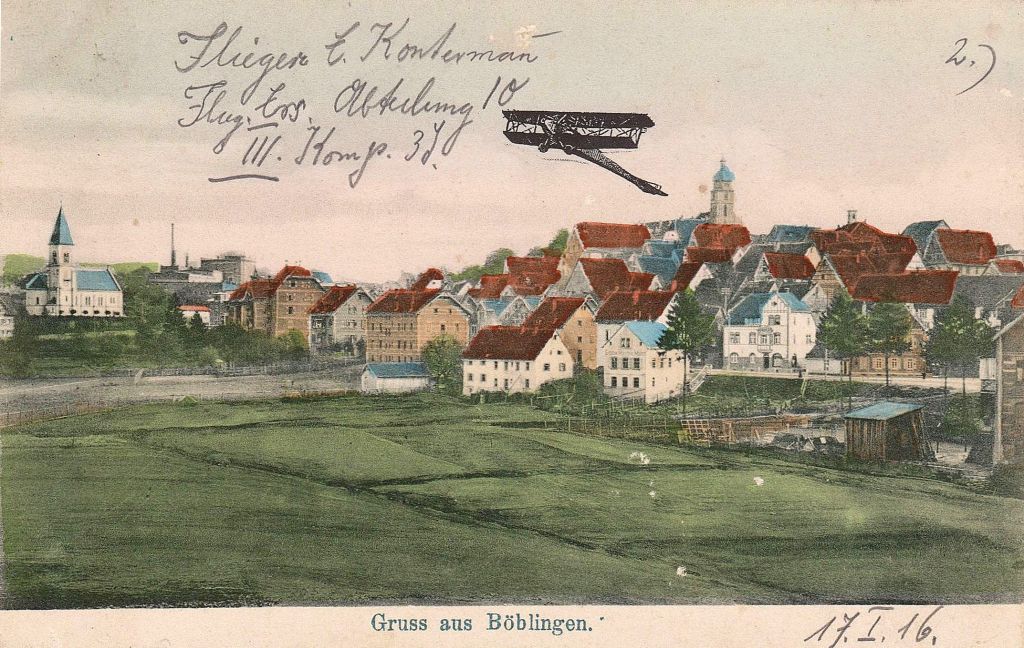 Flieger E. Konterman̄
2.)
Flug. Ers. Abteilung 10
III. Komp. 3J.
Gruss aus Böblingen.
17. I. 16.